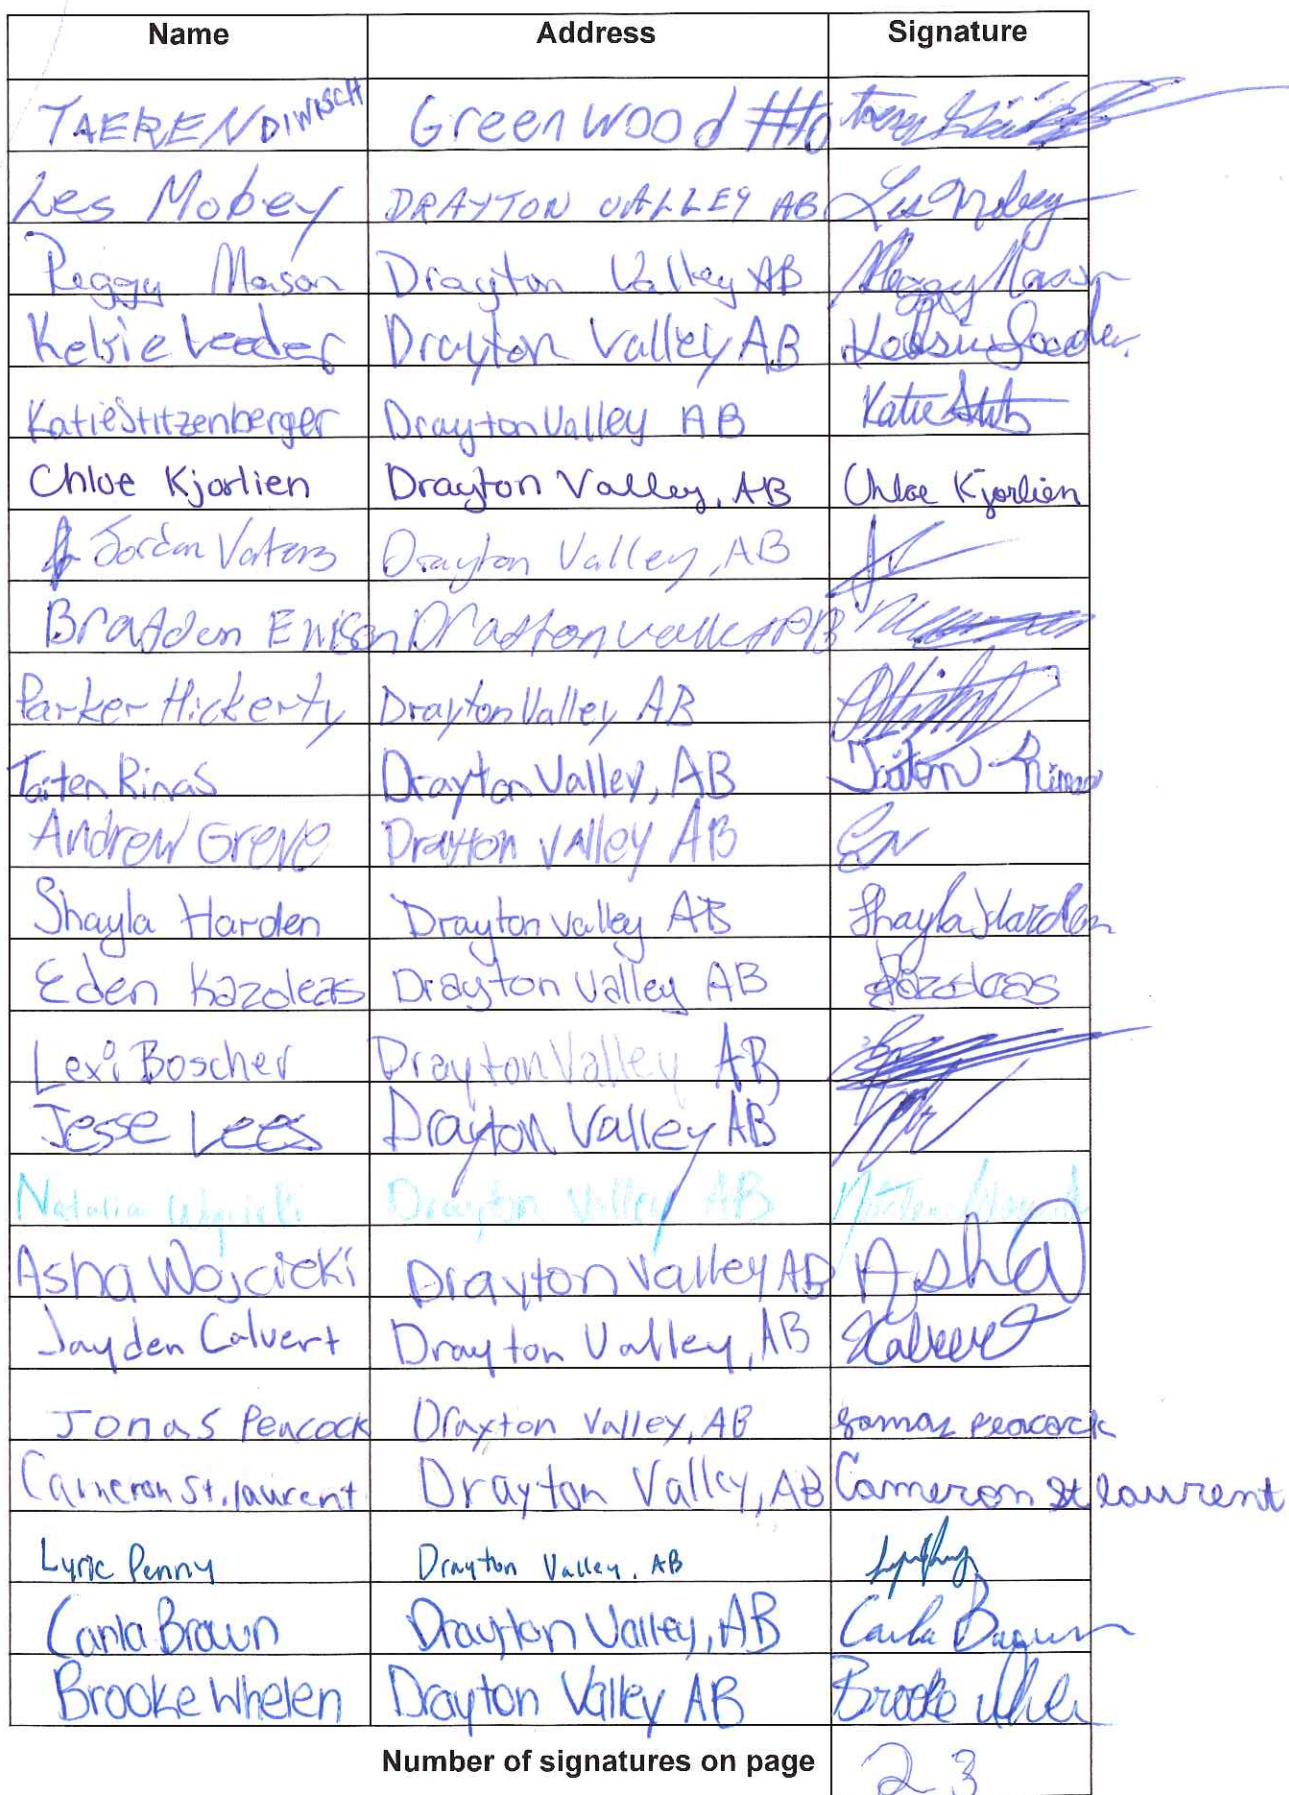 Name Address Signature
TAEREN DIWISCH Greenwood #10
Les Mobey DRAYTON VALLEY AB Les Mobey
Peggy Mason Drayton Valley AB Peggy Mason
Kelsie Leeder Drayton Valley AB Kelsie Leeder
Katie Stitzenberger Drayton Valley AB Katie Stitz
Chloe Kjorlien Drayton Valley, AB Chloe Kjorlien
Jordan Vaters Drayton Valley, AB
Brayden Drayton valley AB
Parker Hickerty Drayton Valley AB
Taiten Rinas Drayton Valley, AB Taiten Rinas
Andrew Greve Drayton Valley AB
Shayla Harden Drayton valley AB Shayla Harden
Eden Kazoleas Drayton Valley AB Kazoleas
Lexi Boscher Drayton Valley AB
Jesse Lees Drayton Valley AB
Natalia Drayton Valley AB
Asha Wojcicki Drayton Valley AB Asha
Jayden Calvert Drayton Valley, AB
Jonas Peacock Drayton Valley, AB Jonas peacock
Cameron St. laurent Drayton Valley, AB Cameron St laurent
Lyric Penny Drayton Valley, AB
Carla Brown Drayton Valley, AB Carla Brown
Brooke Whelen Drayton Valley AB Brooke Whelen
Number of signatures on page 23